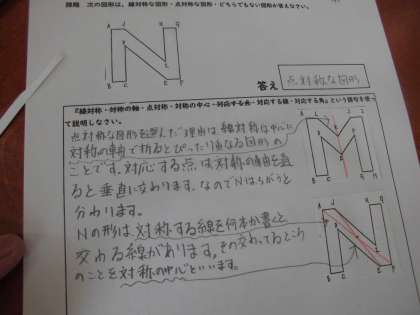 課題 次の図形は、線対称な図形・点対称な図形・どちらでもない図形か答えなさい。
A J H G
B C E F
答え 点対称な図形
『線対称・対称の軸・点対称・対称の中心・対応する点・対応する線・対応する角』という語句を使って説明しなさい。
点対称な図形を選んだ理由は、線対称は中心に
対称の軸で折るとぴったり重なる図形の
ことです。対応する点は対称の軸を通
ると垂直に交わります。なのでNはちがうと
分かります。
Nの形は対称する線を何本か書くと
交わる線があります。その交わってるところ
のことを対称の中心といいます。